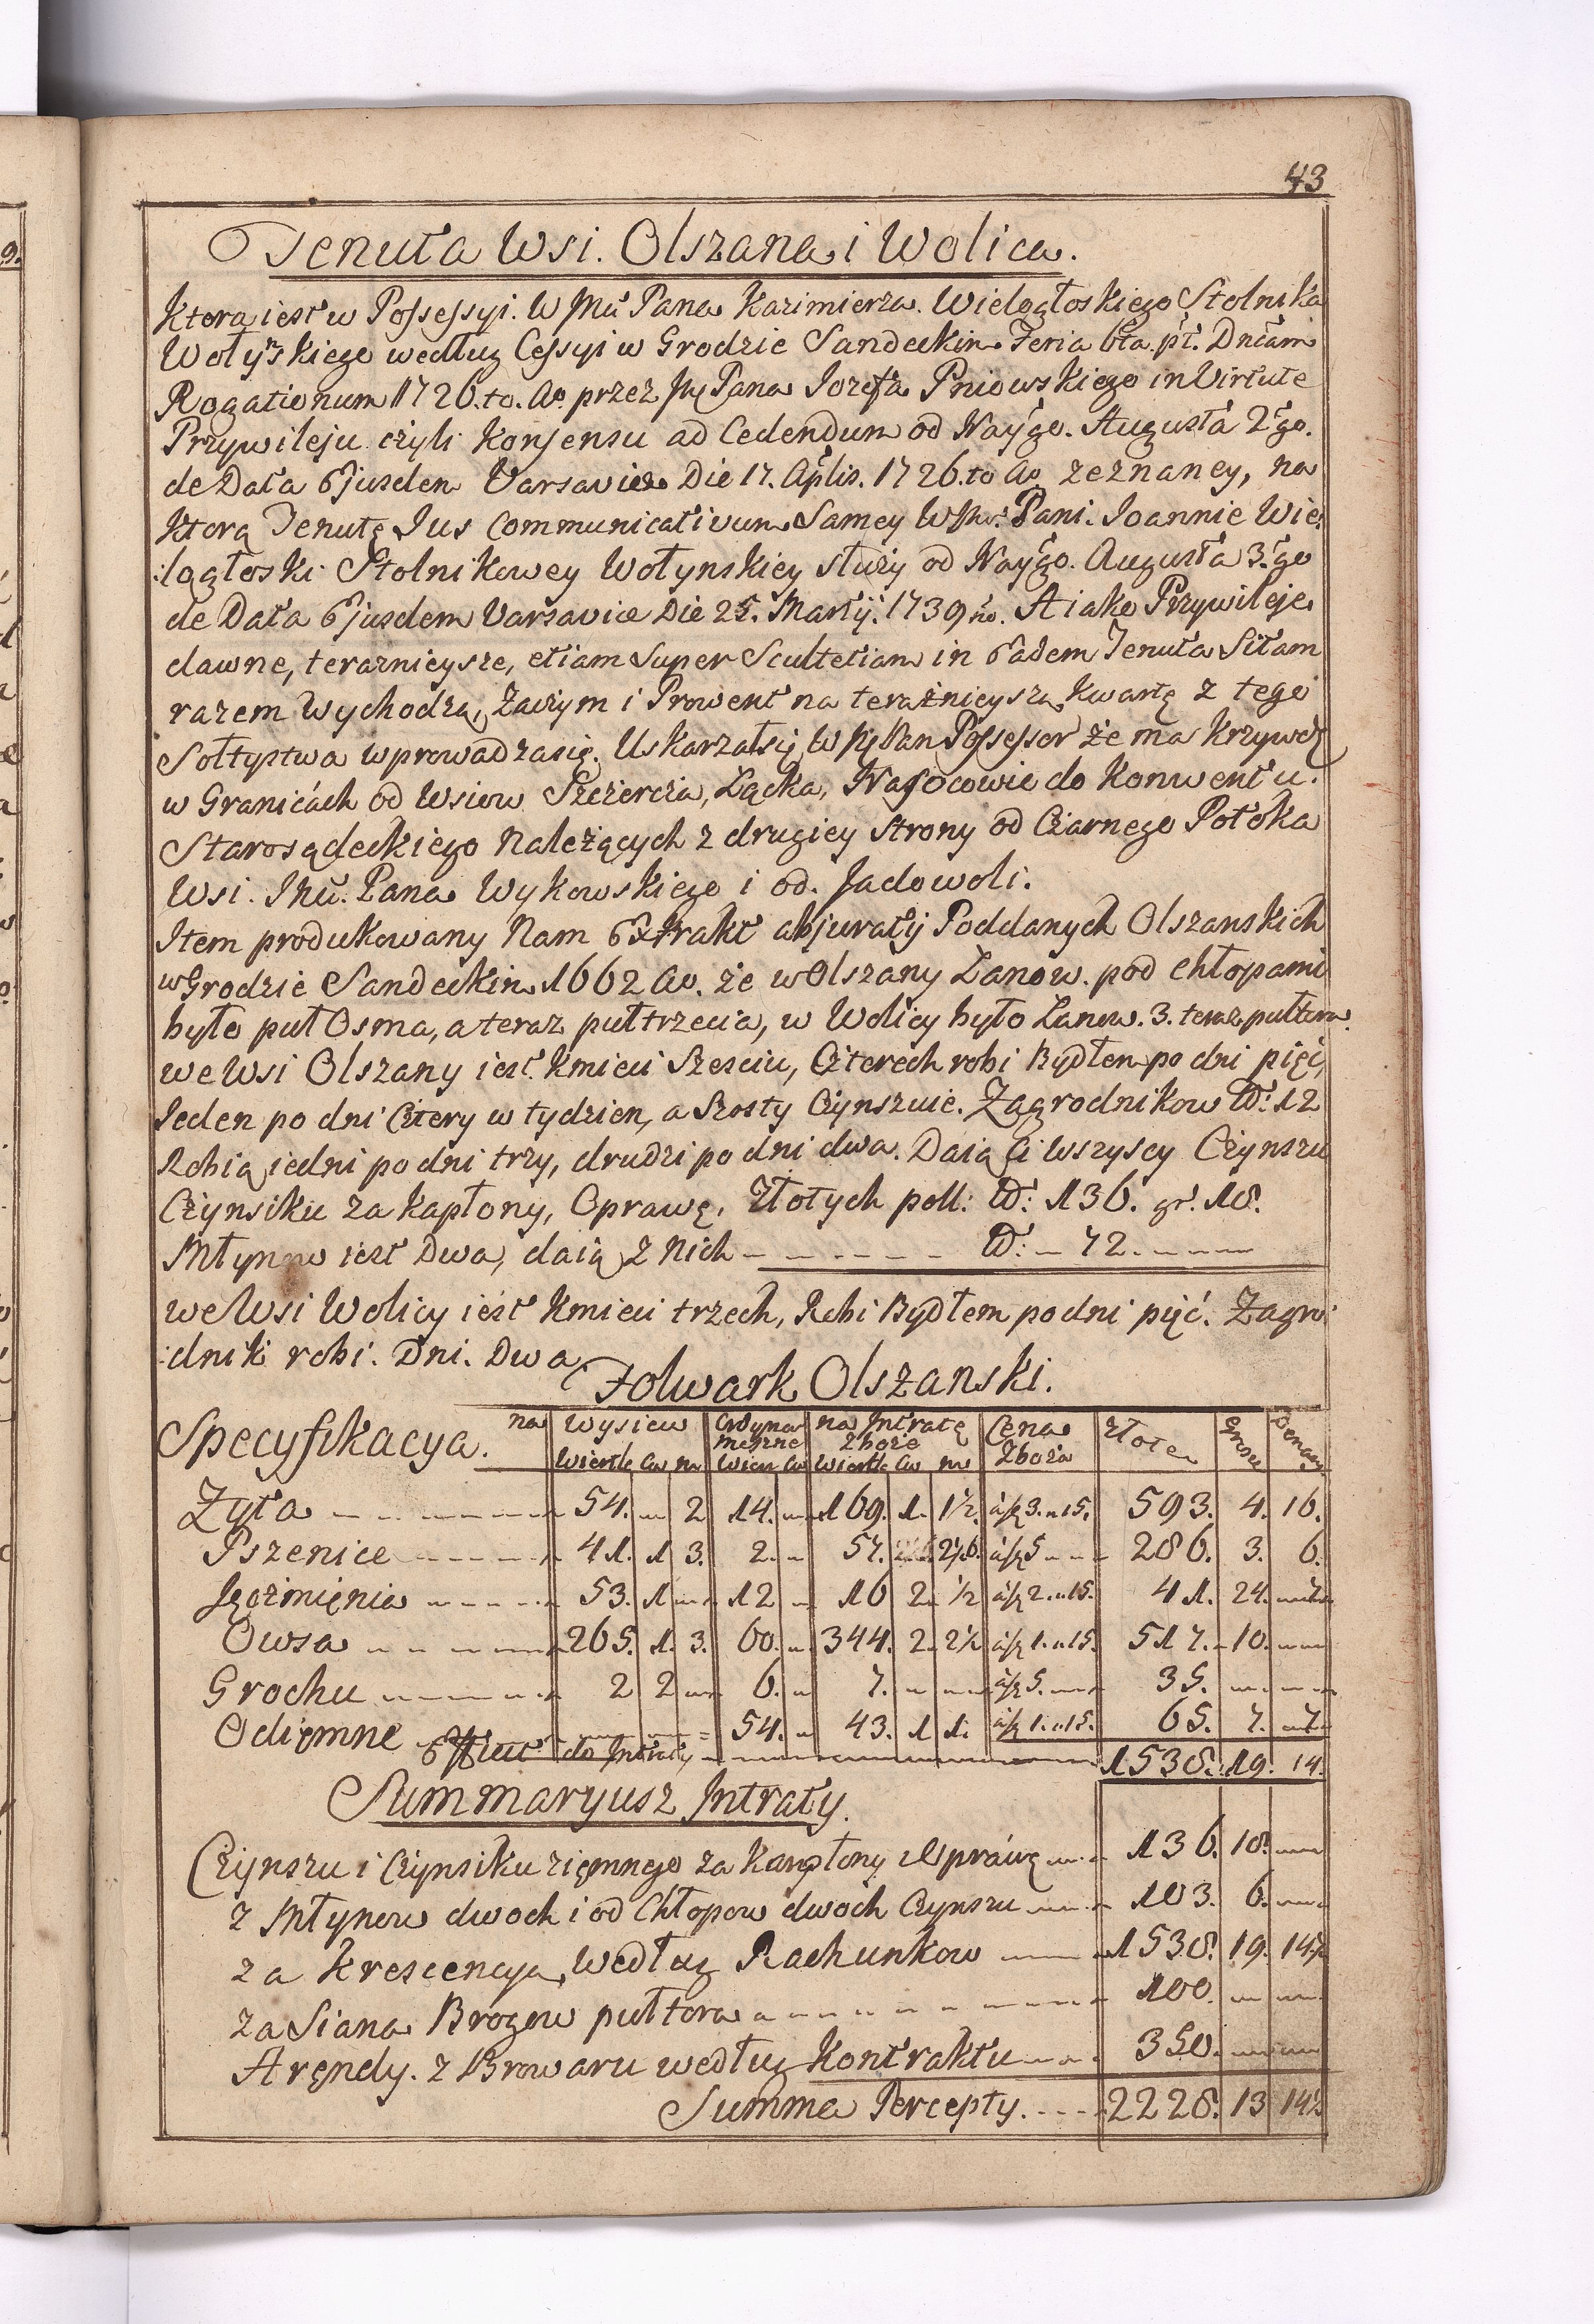 43
Tenuta Wsi. Olszana i Wolica.
Ktora iest w Possessyi. W Jmći Pana Kazimierza. Wielogłoskiego Stolnika
Wołyńskiego według Cessyi w Grodzie Sandeckim Feria 6ta pt. Dncam
Rogationum 1726.to. Ao. przez Jmę Pana Jozefa Pniowskiego in Virtute
Przywileju czyli Konsensu ad Cedendum od Nayśgo. Augusta 2go.
de Data Ejusdem Varsaviæ Die 17. Aplis. 1726.to Ao. zeznaney, na
Ktorą Tenutę Jus Communicativum Samey W Jmć: Pani. Joannie Wie:
:logłoski Stolnikowey Wołynskiey służy od Nayśgo. Augusta 3.go
de Data Ejusdem Varsaviæ Die 25. Martij. 1739no. A iako Przywileje
dawne, teraznieysze, etiam super Scultetiam in Eadem Tenuta Sitam
razem Wychodzą, Zaczym i Prowent na teraźnieyszą Kwartę z tego
Sołtystwa wprowadza się. Uskarzał się W Jmę Pan Possessor że ma Krzywdę
w Granicách od Wsiow Szczercza, Łącka, Nasocowic do Konwentu.
Starosądeckiego Należących z drugiey strony od Czarnego Potoka
Wsi. Jmći. Pana Wykowskiego i od. Jadowoli.
Item produkowany Nam Extrakt abjuraty Poddanych Olszanskich
w Grodzie Sandeckim 1662 Ao. że w Olszany Łanow. pod chłopami
było puł Osma, a teraz puł trzecia, w Wolicy było Łanow. 3. teraz pułtora.
we Wsi Olszany iest Kmieci Szesciu, Czterech robi Bydłem po dni pięć,
Jeden po dni Cztery w tydzien, a Szosty Czynszuie. Zagrodnikow N: 12
Robią iedni po dni trzy, drudzi po dni dwa. Daią Ci wszyscy Czynszu
Czynsiku za Kapłony, Oprawę, Złotych poll: N: 136. gr. 18.
Młynow iest Dwa, daią z Nich - - - - - - - N: - 72. - - - -
we Wsi Wolicy iest Kmieci trzech, Robi Bydłem po dni pięć. Zagro:
:dnik robi. Dni. Dwa
Folwark Olszanski.
Specyfikacya. na Wysiew Ordynar. meszne na Intratę Zboże Cena Zboża Złote Grosze Denary
Wiertle Cw m Wier Cw Wiertle Cw m
Zyta 54. 2 14. 169. 1. 1½. à fl 3. „ 15. 593. 4. 16.
Pszenice 41. 1 3. 2. 57. 2⅙. à fl 5 286. 3. 6.
Jęczmięnia 53. 1 12 16 2 ½ à fl 2. „ 15. 41. 24.
Owsa 265. 1. 3. 60. 344. 2 2½ à fl 1. „ 15. 517. 10.
Grochu 2 2 6. 7. à fl 5. 35.
Odięmne 54. 43. 1 1. à fl 1. „ 15. 65. 7.
Efficit do Intraty 1538. 19. 14.
Summaryusz Intraty.
Czynszu i Czynsiku zięmnego za Kapłony Oprawę 136. 18.
z Młynow dwoch i od Chłopow dwoch Czynszu 103. 6.
za Krescencyą, według Rachunkow 1538. 19. 14½
za Siana Brogow pułtora 100.
Arendy. z Browaru według Kontraktu 350.
Summa Percepty. 2228. 13 14½